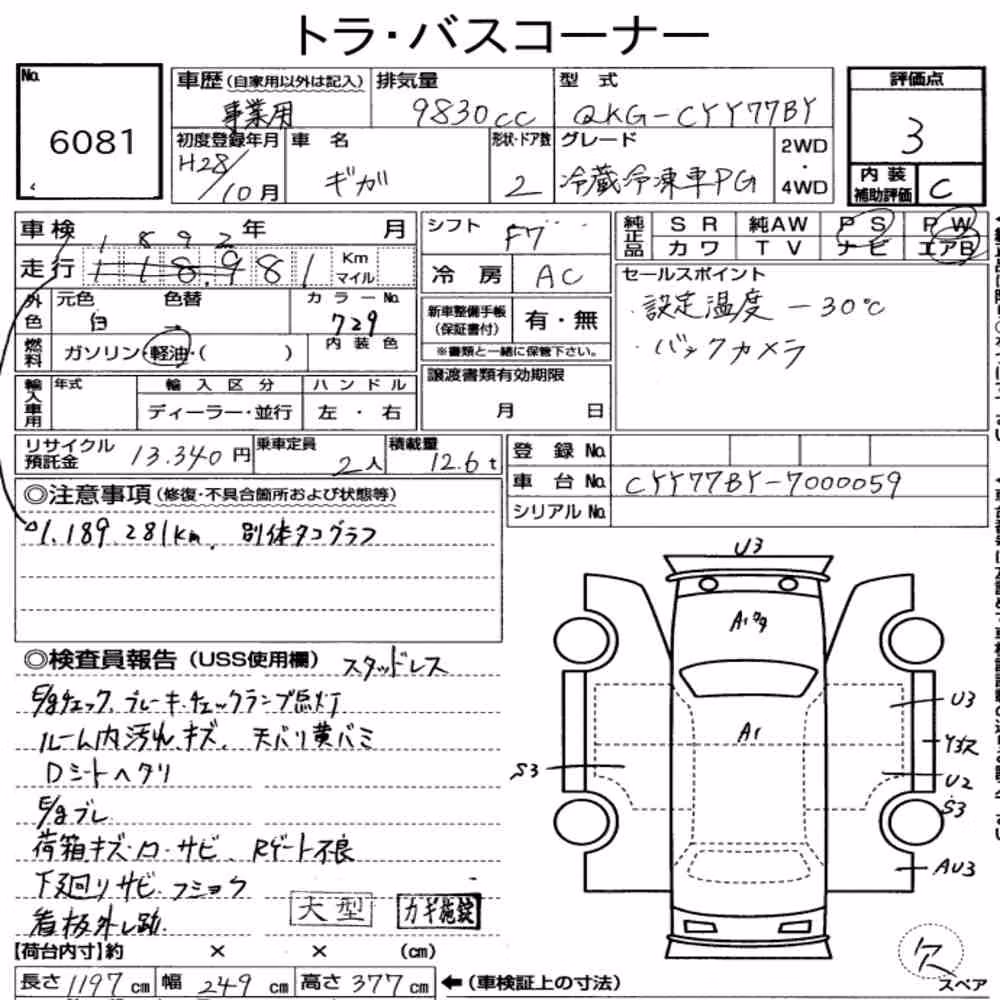 トラ・バスコーナー
No.
6081
車歴(自家用以外は記入) 事業用
排気量 9830cc
型式 QKG-CYY77BY
評価点 3
初度登録年月 H28/10月
車名 ギガ
形状・ドア数 2
グレード 冷蔵冷凍車PG
2WD・4WD
内装補助評価 C
車検 年 月
1 8 9 2
走行 1 1 8 9 8 1 Km マイル
シフト F7
冷房 AC
純正品 SR 純AW PS PW
カワ TV ナビ エアB
外色 元色 白 色替 → カラーNo. 729
内装色
燃料 ガソリン・軽油・( )
新車整備手帳(保証書付) 有・無
※書類と一緒に保管下さい。
セールスポイント
・設定温度 -30℃
・バックカメラ
輸入車用 年式 輸入区分 ハンドル
ディーラー・並行 左・右
譲渡書類有効期限
月 日
リサイクル預託金 13.340円
乗車定員 2人
積載量 12.6t
登録No.
車台No. CYY77BY-7000059
シリアルNo.
◎注意事項(修復・不具合箇所および状態等)
1.189.281km. 別体タコグラフ
◎検査員報告(USS使用欄) スタッドレス
E/gチェック、ブレーキ・チェックランプ点灯
ルーム内汚れ、キズ、天バリ黄バミ
Dシートヘタリ
E/gブレ
荷箱キズ・凹・サビ、Rゲート不良
下廻りサビ・フショク
看板外し跡
大型
カギ施錠
【荷台内寸】約 × × (cm)
長さ 1197cm 幅 249cm 高さ 377cm ←(車検証上の寸法)
U3
A1
A1
U3
S3
U2
S3
AU3
欠
スペア